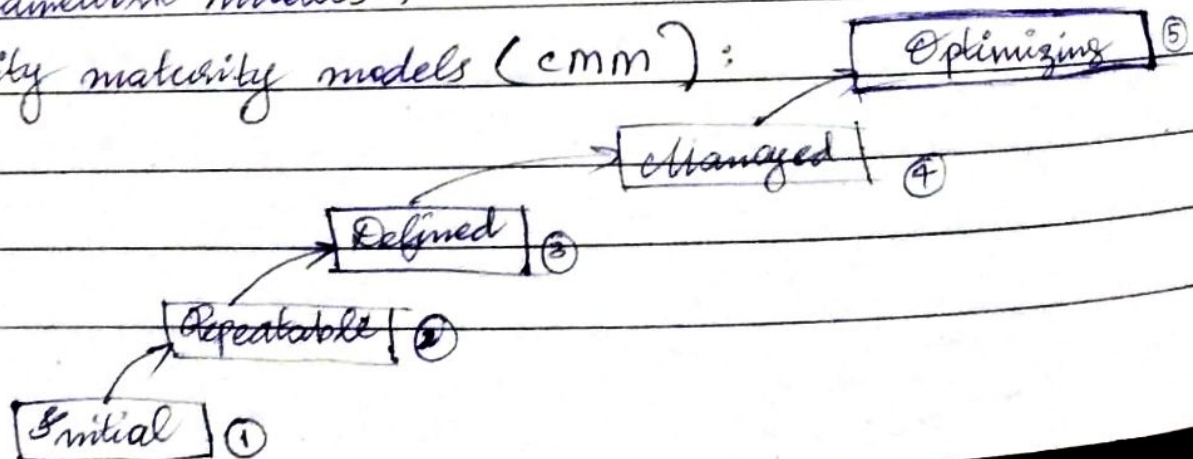 models :
ity maturity models (cmm) :
Optimizing ⑤
Managed ④
Defined ③
Repeatable ②
Initial ①